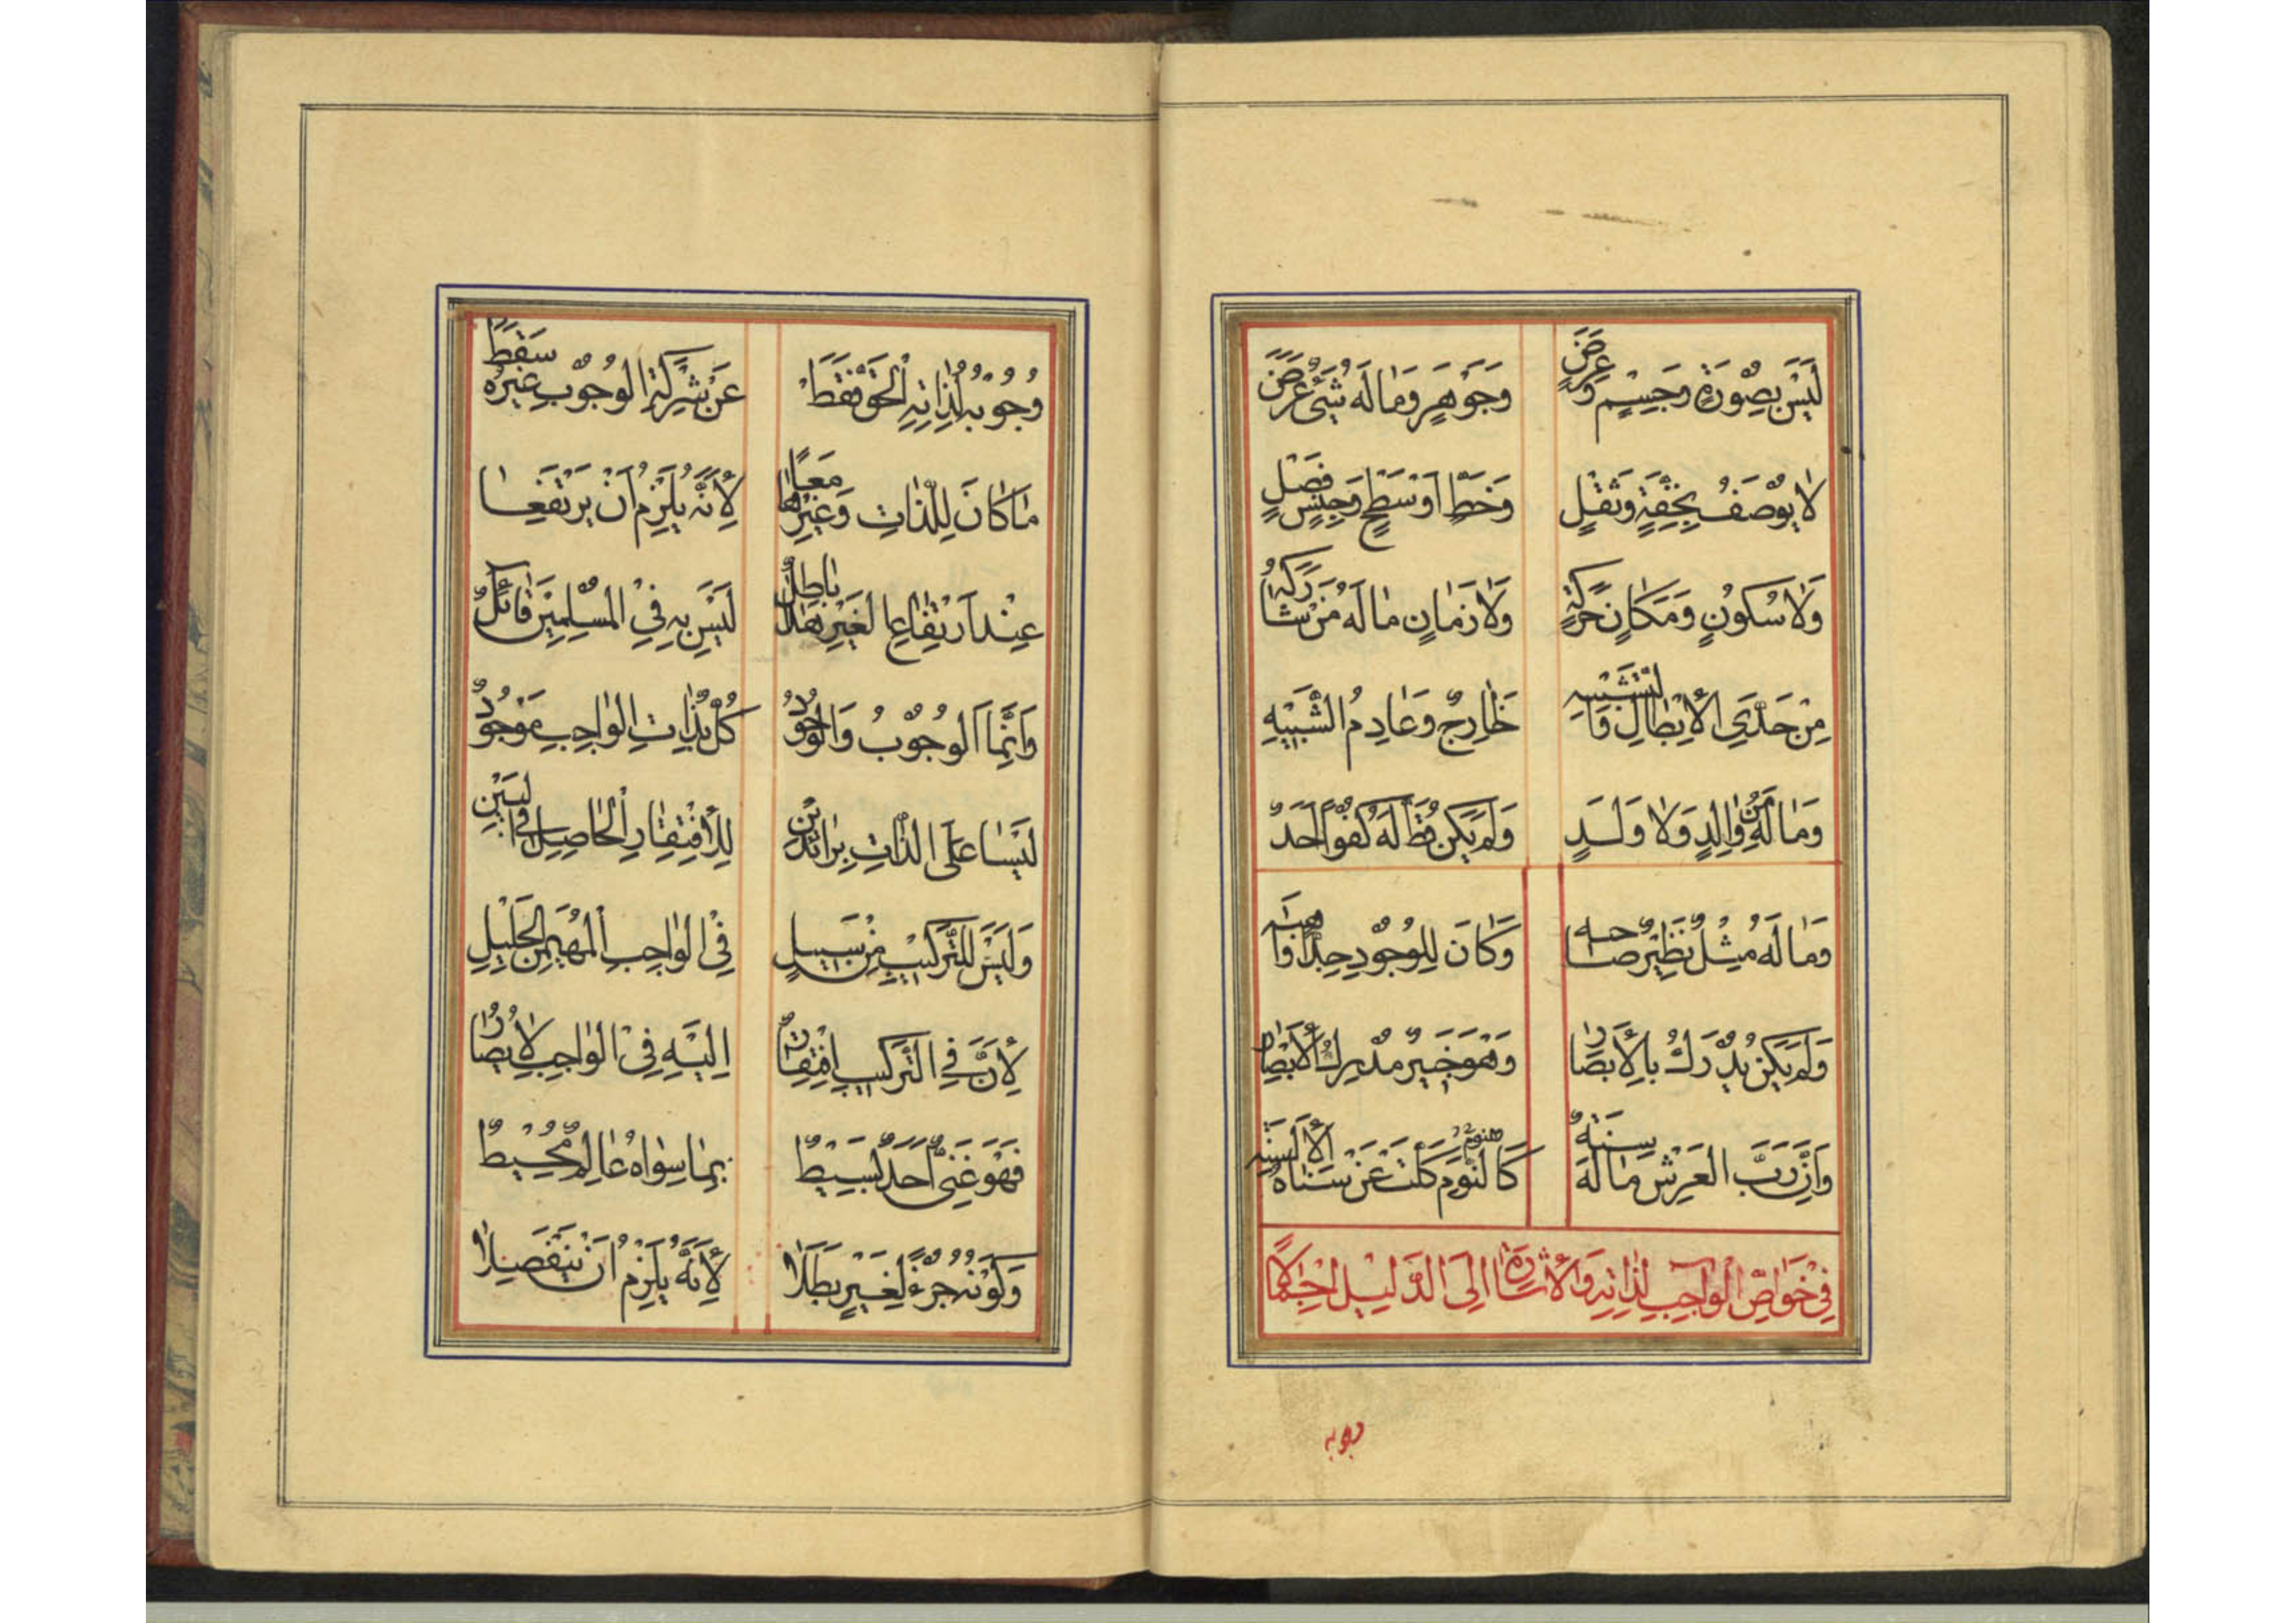 لَيْسَ بِصُورَةٍ وَجِسْمٍ وَعَرَضْ وَجَوْهَرٍ وَمَالَهُ شَيْءٌ عَرَضْ
لا يُوصَفُ بِخِفَّةٍ وَثِقْلٍ وَخَطٍّ اَوْ سَطْحٍ وَجِنْسٍ فَصْلٍ
وَلا سُكُونٍ وَمَكَانٍ حَرَكَةٍ وَلا زَمَانٍ مَالَهُ مَنْ شَارَكَهُ
مِنْ حَدَّيِ الْأِبْطَالِ وَالتَّشْبِيهِ خَارِجٌ وَعَادِمُ الشَّبِيهِ
وَمَا لَهُ مِنْ وَالِدٍ وَلا وَلَدٍ وَلَمْ يَكُنْ قَطُّ لَهُ كُفُوًا اَحَدٌ
وَمَا لَهُ مِثْلٌ نَظِيْرٌ صَاحِبَه وَكَانَ لِلْوُجُودِ جِدًّا وَاهِبَه
وَلَمْ يَكُنْ يُدْرَكُ بِالْأَبْصَارِ وَهْوَ خَبِيْرٌ مُدْرِكُ الْأَبْصَارِ
وَاَنَّ رَبَّ الْعَرْشِ مَا لَهُ سِنَةٌ كَالنَّوْمِ كَلَّتْ عَنْ سَنَاهُ الْأَلْسِنَه
فِيْ خَوَاصِّ الْوَاجِبِ لِذَاتِهِ وَالْأِشَارَةُ اِلَى الدَّلِيْلِ اِحْكَامًا
وجوبه
وُجُوبُهُ لِذَاتِهِ الْحَقِّ فَقَطْ عَنْ شِرْكَةِ الْوُجُوبِ غَيْرُهُ سَقَطْ
مَا كَانَ لِلذَّاتِ وَغَيْرِهَا مَعًا لِأَنَّهُ يَلْزَمُ اَنْ يَرْتَفِعَا
عِنْدَ ارْتِفَاعِهَا لِغَيْرِ هَذَا بَاطِلٌ لَيْسَ بِهِ فِيْ الْمُسْلِمِيْنَ قَائِلٌ
وَاِنَّمَا الْوُجُوبُ وَالْوُجُودُ كُلٌّ بِذَاتِ الْوَاجِبِ مَوْجُودٌ
لَيْسَا عَلَى الذَّاتِ بِزَائِدَيْنِ لِلْأِفْتِقَارِ الْحَاصِلِ فِي اَيْسَيْنِ
وَلَيْسَ لِلتَّرْكِيْبِ مِنْ سَبِيْلٍ فِيْ الْوَاجِبِ الْمُهَيْمِنِ الْجَلِيْلِ
لِأَنَّ فِي التَّرْكِيْبِ افْتِقَارٌ اِلَيْهِ فِيْ الْوَاجِبِ لا يُصَارُ
فَهْوَ غَنِيٌّ اَحَدٌ بَسِيْطٌ بِمَا سِوَاهُ عَالِمٌ مُحِيْطٌ
وَكَوْنُهُ جُزْءً لِغَيْرٍ بَطَلا لِأَنَّهُ يَلْزَمُ اَنْ يَنْفَصِلا